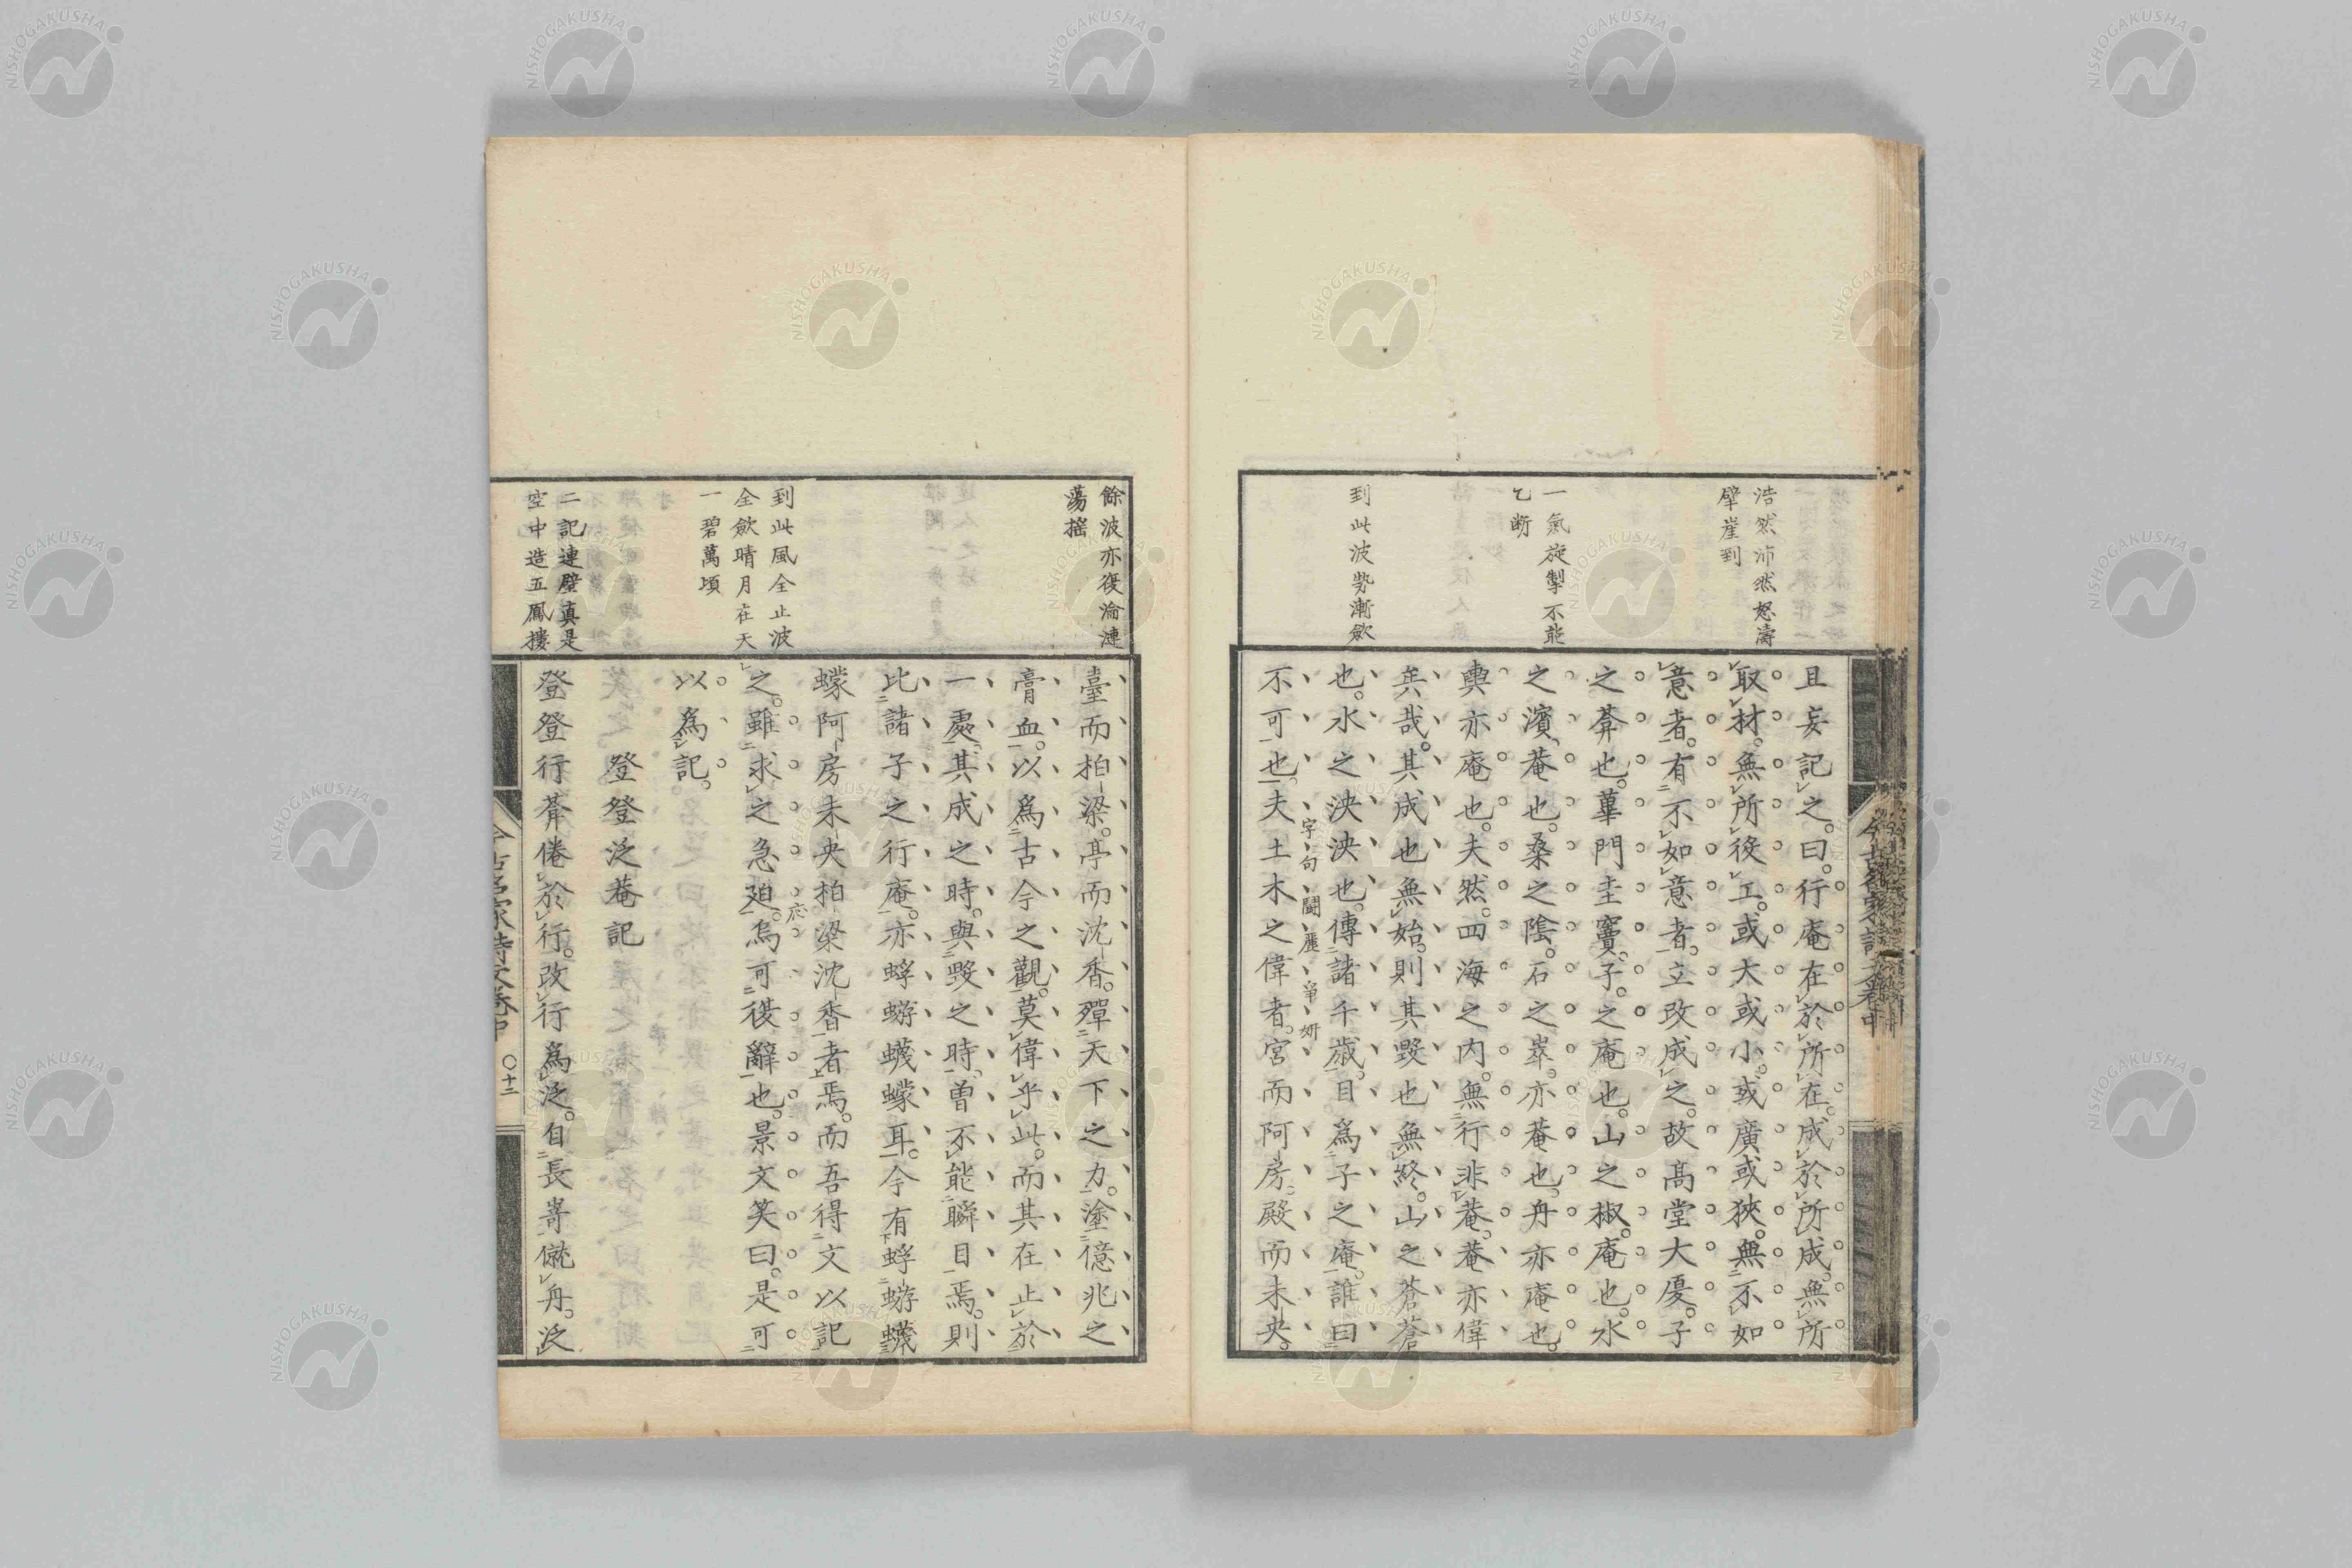 浩然沛然怒濤
擘崖到
一氣旋掣不能
乙断
到此波勢漸歛
且妄記之。曰。行庵在於所在。成於所成。無所
取材。無所役工。或大或小。或廣或狹。無不如
意者。有不如意者。立改成之。故高堂大厦。子
之葊也。蓽門圭竇。子之庵也。山之椒。庵也。水
之濱。菴也。桑之陰。石之崒。亦菴也。舟亦庵也。
輿亦庵也。夫然。四海之内。無行非菴。菴亦偉
矣哉。其成也無始。則其毀也無終。山之蒼蒼
也。水之泱泱也。傳諸千歳。目為子之庵。誰曰
字句鬪麗爭妍
不可也。夫土木之偉者。宮而阿房。殿而未央。
今古名家詩文卷中
餘波亦復淪漣
蕩揺
到此風全止波
全歛晴月在天
一碧萬頃
二記連璧真是
空中造五鳳樓
臺而柏梁。亭而沈香。殫天下之力。塗億兆之
膏血。以為古今之觀。莫偉乎此。而其在止於
一處。其成之時。與毀之時。曽不能瞬目焉。則
比諸子之行庵。亦蜉蝣蠛蠓耳。今有蜉蝣蠛
蠓阿房未央柏梁沈香者焉。而吾得文以記
之。雖求之急廹。烏可得辭也。景文笑曰。是可
応
以為記。
登登泛菴記
登登行葊倦於行。改行為泛。自長嵜僦舟。泛
今古名家詩文卷中
〇十二